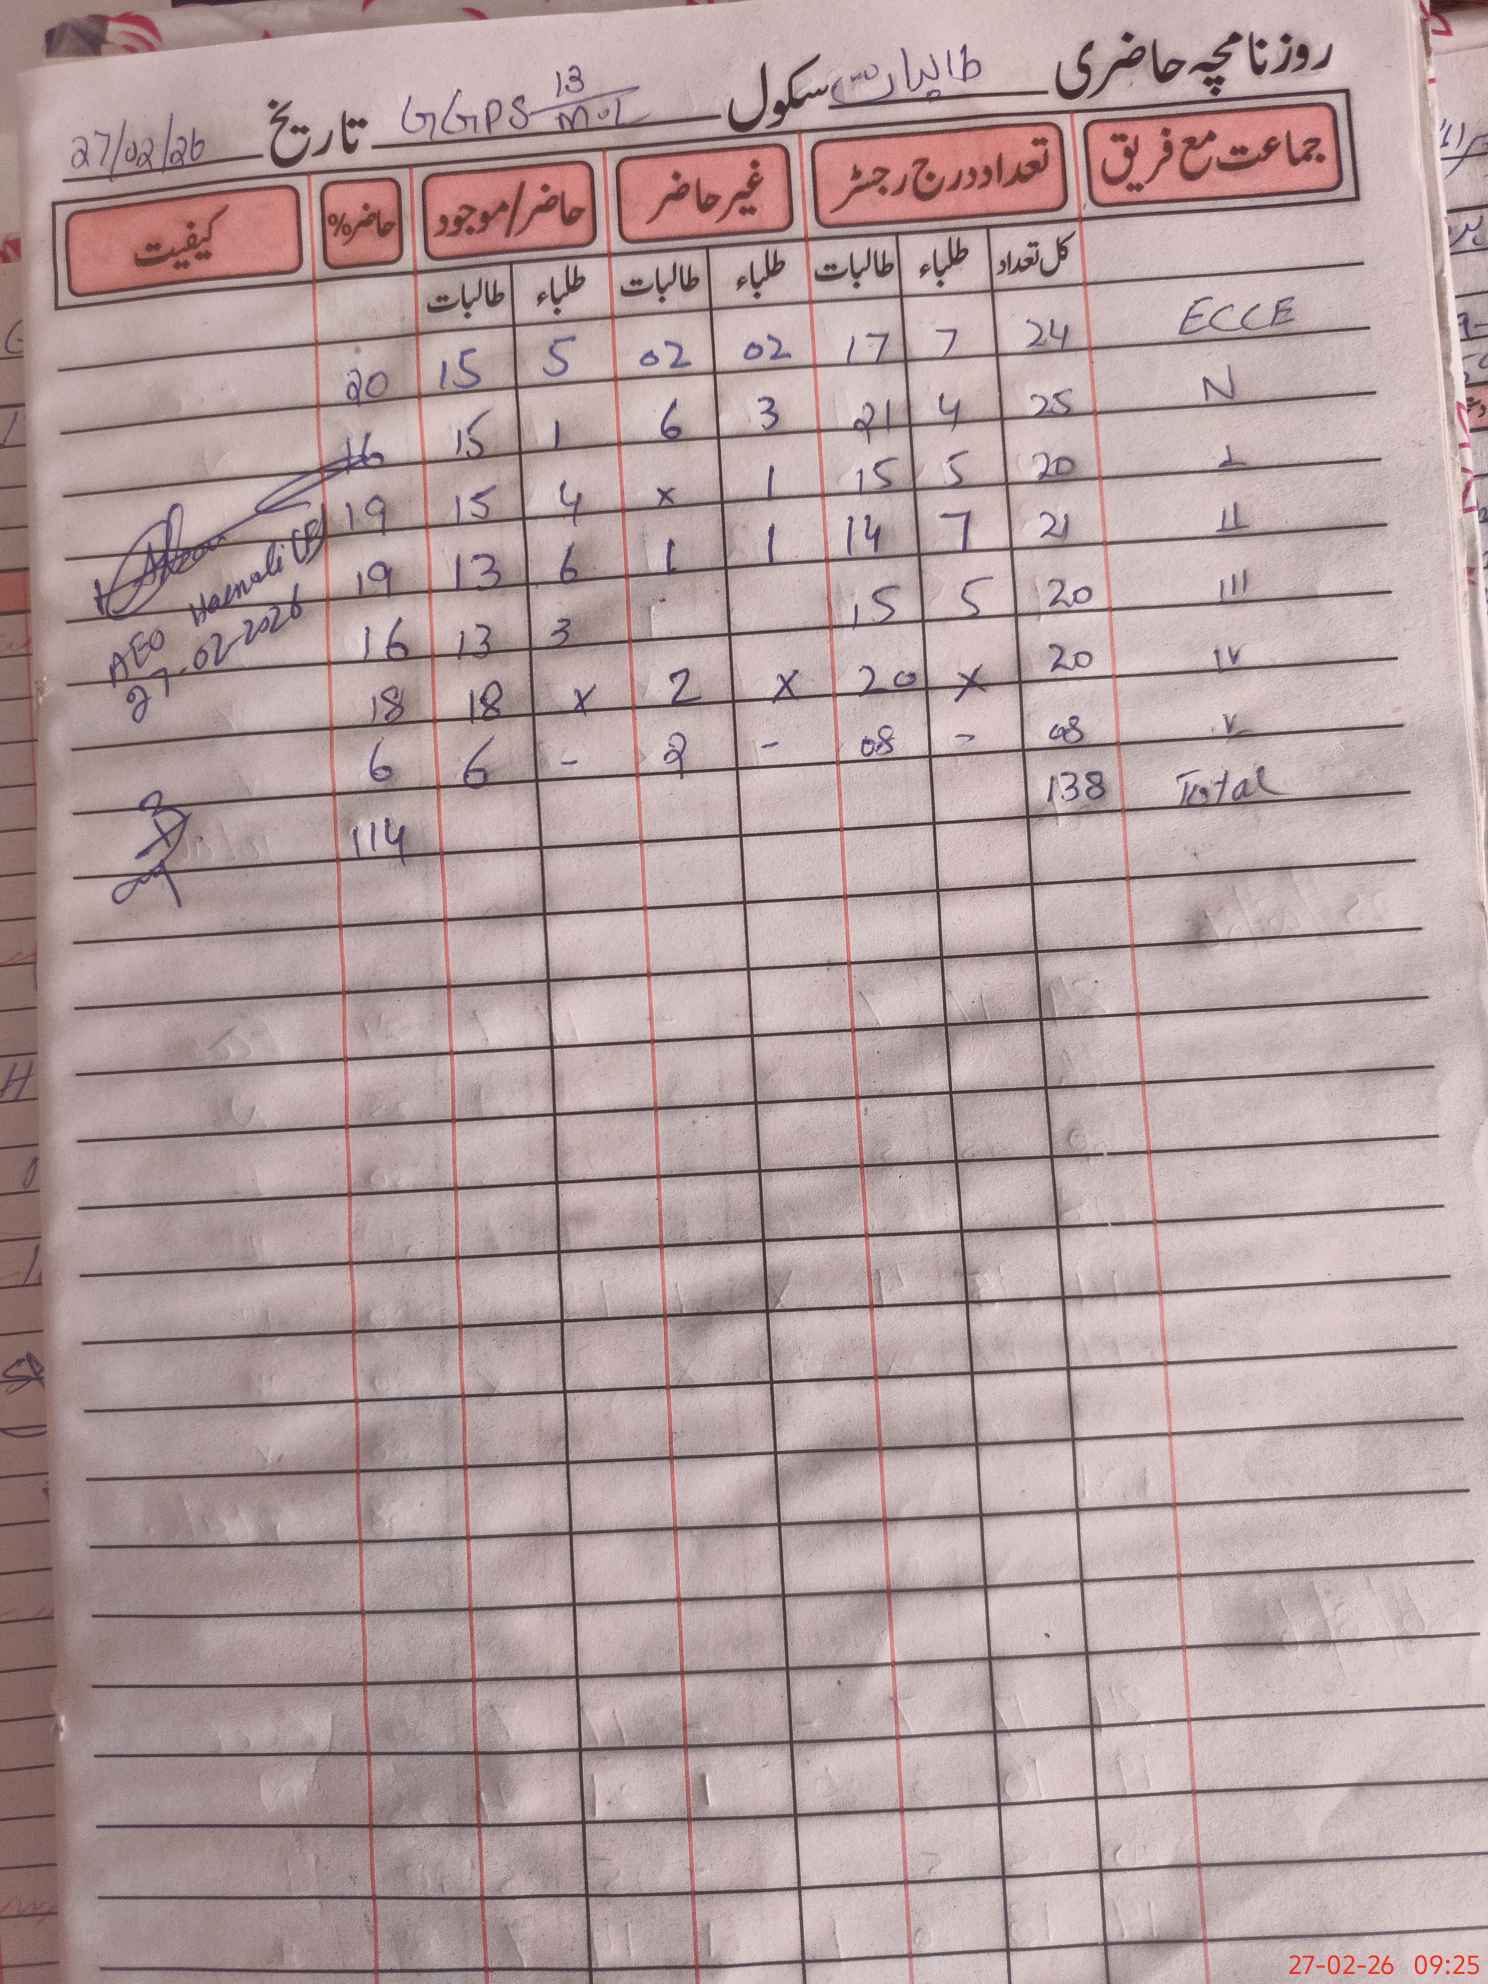 روزنامچہ حاضری طالبات سکول GGPS 13/M.L تاریخ 27/02/26
جماعت مع فریق تعداد درج رجسٹر غیر حاضر حاضر/موجود حاضر% کیفیت
کل تعداد طلباء طالبات طلباء طالبات طلباء طالبات
ECCE 24 7 17 02 02 5 15 20
N 25 4 21 3 6 1 15 16
I 20 5 15 1 x 4 15 19
II 21 7 14 1 1 6 13 19
III 20 5 15 3 13 16
IV 20 x 20 x 2 x 18 18
V 08 - 08 - 2 - 6 6
Total 138 114
AEO
27-02-2026
27-02-26 09:25